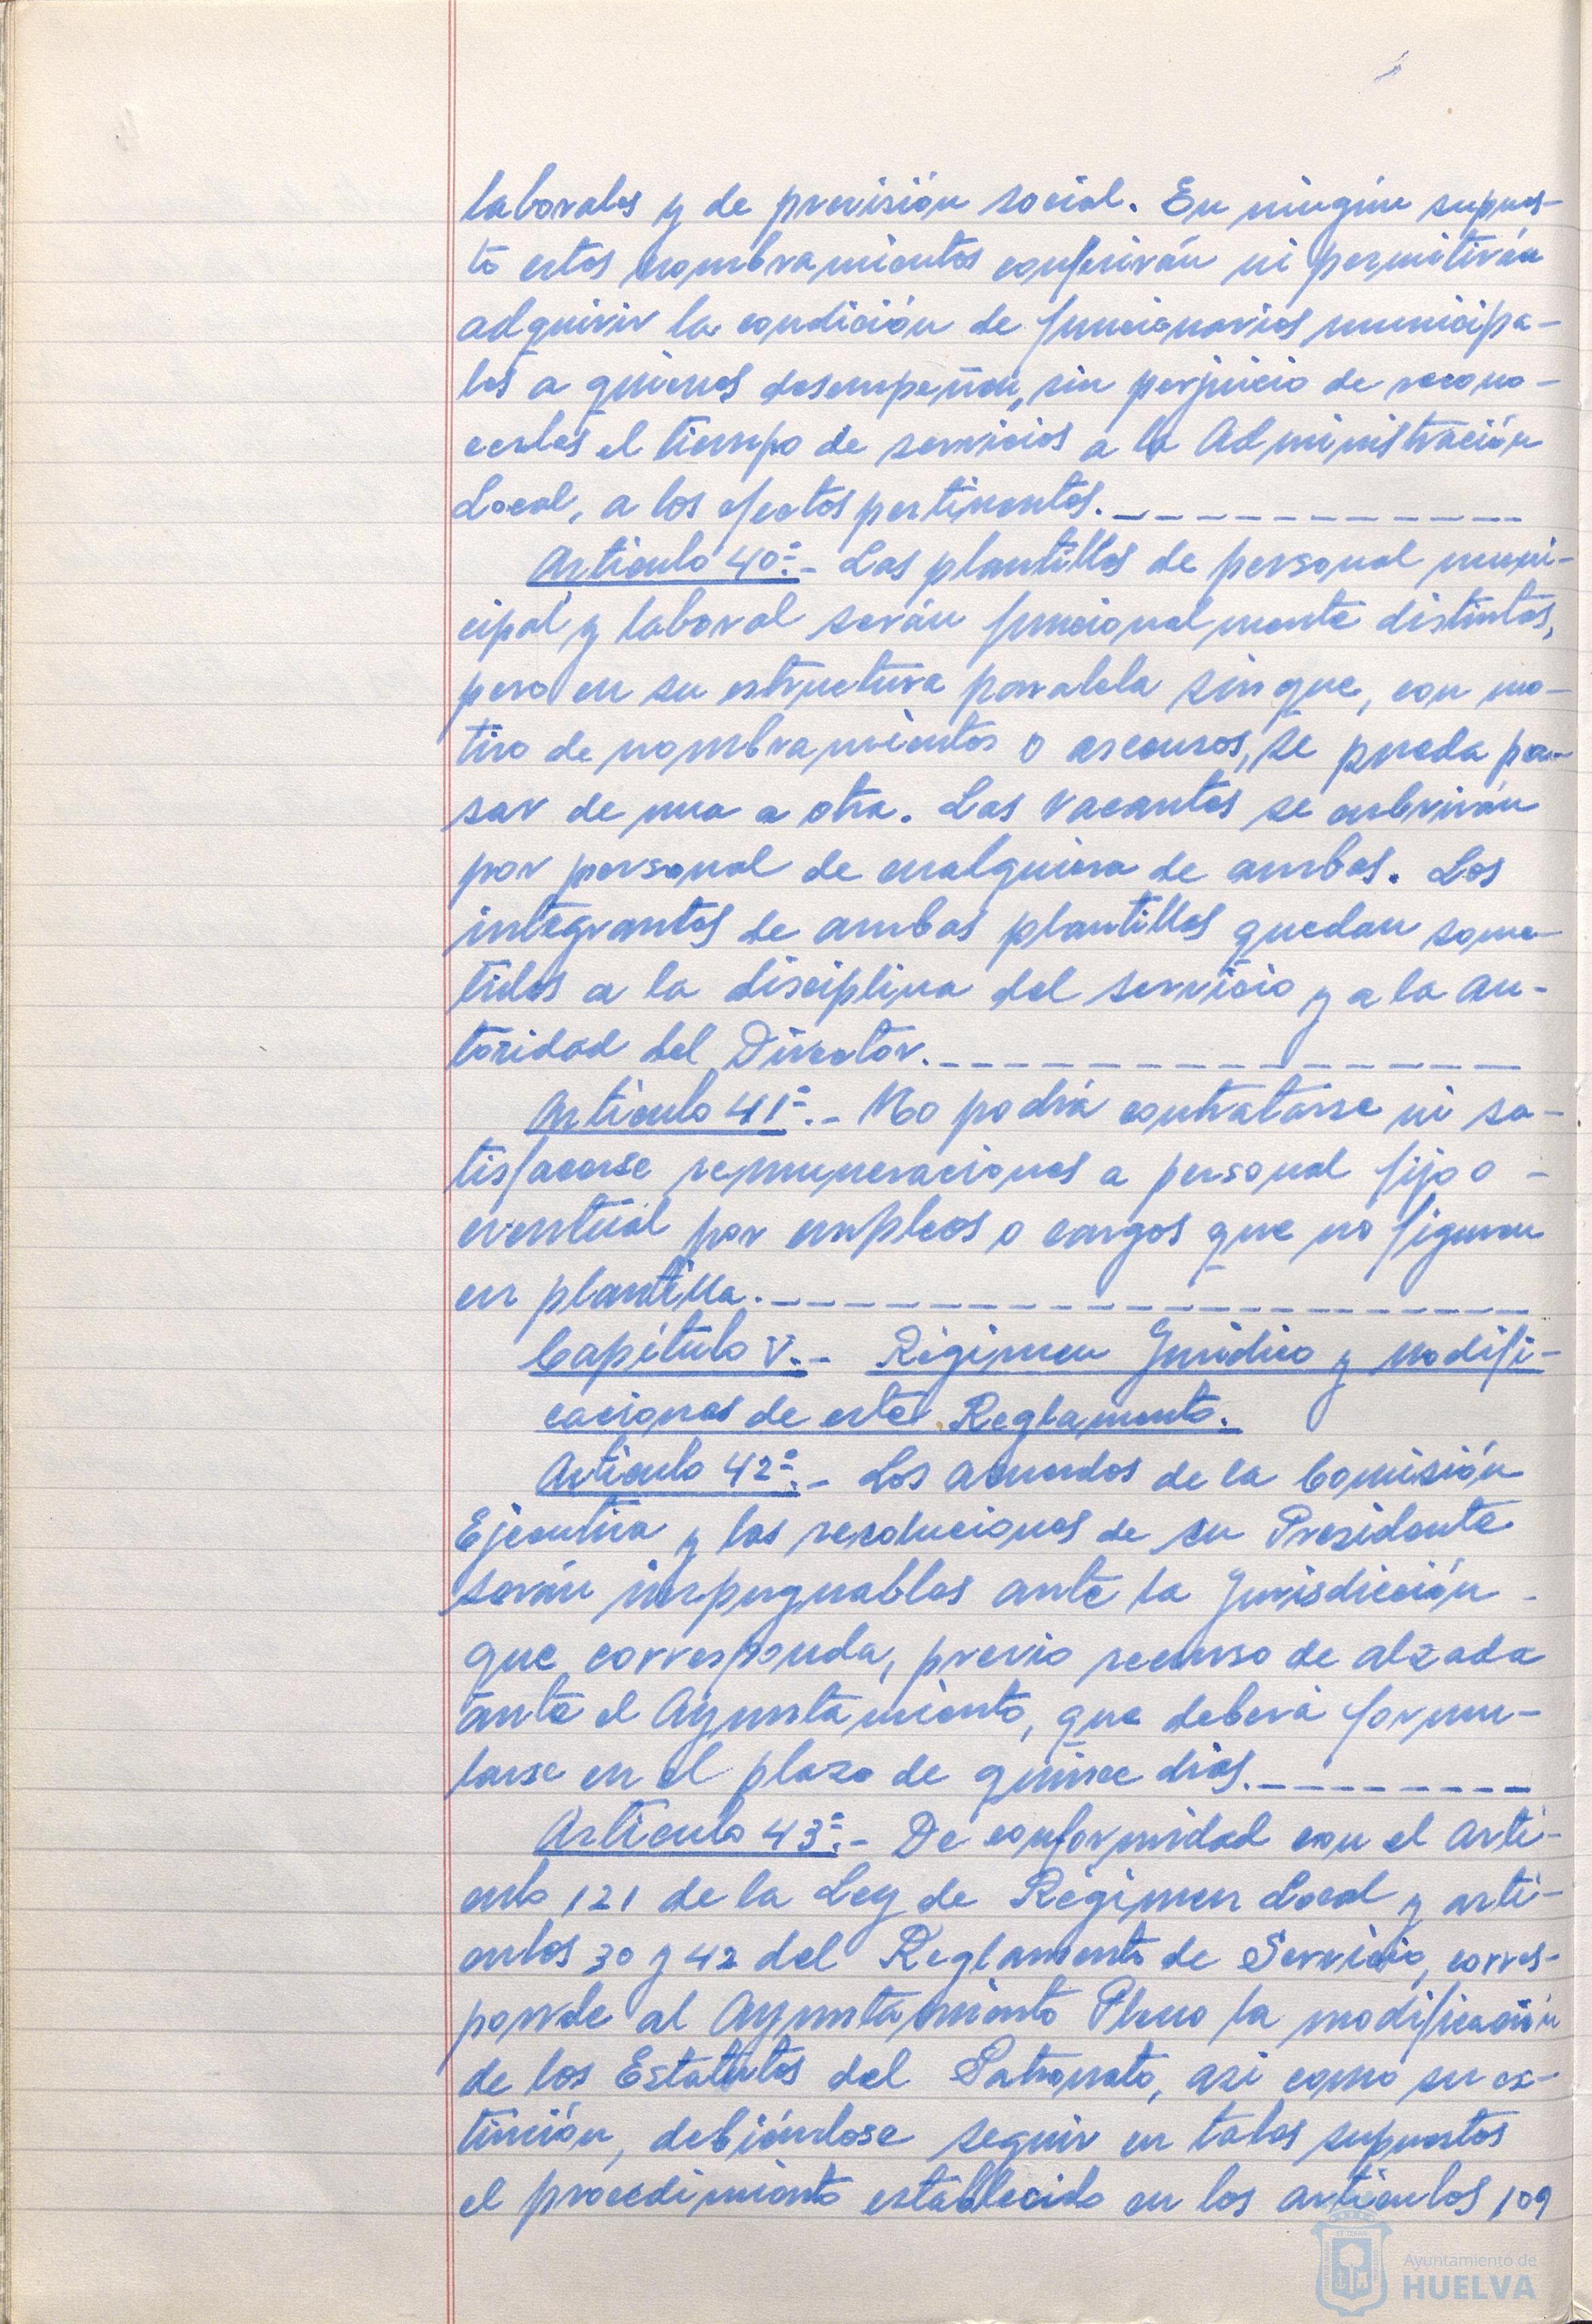 laborales y de previsión social. En ningún supues-
to estos nombramientos conferirán ni permitirán
adquirir la condición de funcionarios municipa-
les a quienes desempeñen, sin perjuicio de recono-
cerles el tiempo de servicios a la Administración
Local, a los efectos pertinentes.
Artículo 40º.- Las plantillas de personal muni-
cipal y laboral serán funcionalmente distintas,
pero en su estructura paralela sin que, con mo-
tivo de nombramientos o ascensos, se pueda pa-
sar de una a otra. Las vacantes se cubrirán
por personal de cualquiera de ambas. Los
integrantes de ambas plantillas quedan some-
tidos a la disciplina del servicio y a la au-
toridad del Director.
Artículo 41º.- No podrá contratarse ni sa-
tisfacerse remuneraciones a personal fijo o -
eventual por empleos o cargos que no figuren
en plantilla.
Capítulo V.- Régimen Jurídico y modifi-
caciones de este Reglamento.
Artículo 42º.- Los acuerdos de la Comisión
Ejecutiva y las resoluciones de su Presidente
serán impugnables ante la Jurisdicción -
que corresponda, previo recurso de alzada
ante el Ayuntamiento, que deberá formu-
larse en el plazo de quince días.
Artículo 43º.- De conformidad con el artí-
culo 121 de la Ley de Régimen Local y artí-
culos 30 y 42 del Reglamento de Servicio, corres-
ponde al Ayuntamiento Pleno la modificación
de los Estatutos del Patronato, asi como su ex-
tinción, debiéndose seguir en tales supuestos
el procedimiento establecido en los artículos 109
Ayuntamiento de
HUELVA